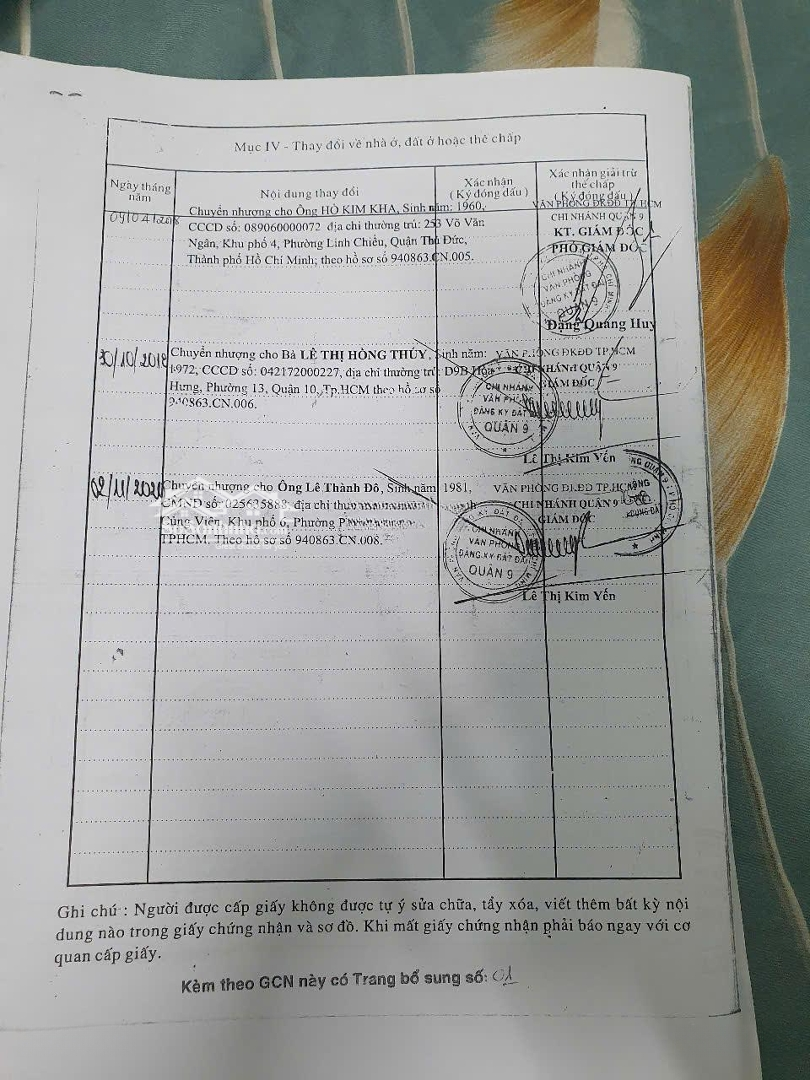 Mục IV - Thay đổi về nhà ở, đất ở hoặc thế chấp
Ngày tháng năm
Nội dung thay đổi
Xác nhận
(Ký đóng dấu)
Xác nhận giải trừ
thế chấp
(Ký đóng dấu)
09/04/2018
Chuyển nhượng cho Ông HỒ KIM KHA, Sinh năm: 1960,
CCCD số: 089060000072 địa chỉ thường trú: 253 Võ Văn
Ngân, Khu phố 4, Phường Linh Chiểu, Quận Thủ Đức,
Thành phố Hồ Chí Minh; theo hồ sơ số 940863.CN.005.
VĂN PHÒNG ĐKĐĐ TP.HCM
CHI NHÁNH QUẬN 9
KT. GIÁM ĐỐC
PHÓ GIÁM ĐỐC
CHI NHÁNH
VĂN PHÒNG
ĐĂNG KÝ ĐẤT ĐAI
QUẬN 9
Đặng Quang Huy
30/10/2018
Chuyển nhượng cho Bà LÊ THỊ HỒNG THÚY, Sinh năm:
1972, CCCD số: 042172000227, địa chỉ thường trú: D9B
Hưng, Phường 13, Quận 10, Tp.HCM theo hồ sơ số
940863.CN.006.
VĂN PHÒNG ĐKĐĐ TP.HCM
CHI NHÁNH QUẬN 9
GIÁM ĐỐC
CHI NHÁNH
VĂN PHÒNG
ĐĂNG KÝ ĐẤT
QUẬN 9
Lê Thị Kim Yến
02/11/2020
Chuyển nhượng cho Ông Lê Thành Đô, Sinh năm 1981,
CMND số: 025635888; địa chỉ
Viên, Khu phố 6, Phường
TPHCM. Theo hồ sơ số 940863.CN.008.
VĂN PHÒNG ĐKĐĐ TP.HCM
CHI NHÁNH QUẬN 9
GIÁM ĐỐC
CHI NHÁNH
VĂN PHÒNG
ĐĂNG KÝ ĐẤT ĐAI
QUẬN 9
Lê Thị Kim Yến
Ghi chú : Người được cấp giấy không được tự ý sửa chữa, tẩy xóa, viết thêm bất kỳ nội
dung nào trong giấy chứng nhận và sơ đồ. Khi mất giấy chứng nhận phải báo ngay với cơ
quan cấp giấy.
Kèm theo GCN này có Trang bổ sung số: 01